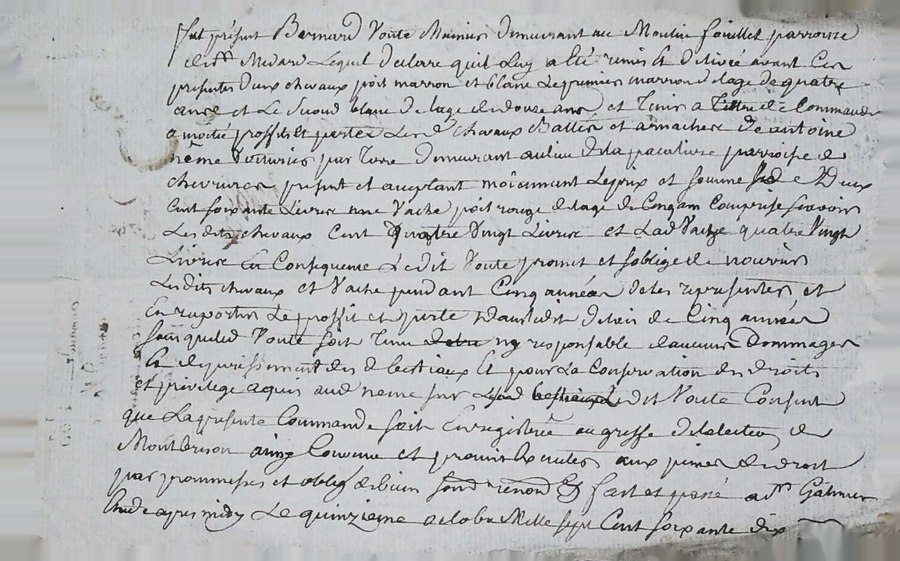 fut présent Bernard Voute Meunier demeurant au Moulin fouillet parroisse
de st Medard Lequel declare quil Luy a été remis et delivré avant Ces
presentes deux chevaux poit marron et blanc Le premier marron delage de quatre
ans et Le second blanc delage de douze ans et tenir a Tittre de Commande
a moitié proffits et pertes Les d chevaux Battés et arnachés de antoine
neme Voiturier par terre demeurant au lieu de la parroisse de
chevrieres present et aceptant moienant Le prix et somme de Deux
Cent soixante Livres une Vache poit rouge delage de Cinq ans Comprise savoir
Lesdits chevaux Cent Quatre Vingt Livres et Lad Vache quatre Vingt
Livres En Consequence Ledit Voute promet et soblige de nourrir
Lesdits chevaux et Vache pendant Cinq années de les representer et
En raporter Le proffit et perte dans Ledit delais de Cinq années
sans que led Voute soit tenu ny responsable daucuns Dommages
Et deperissement des d bestiaux Et pour La Conservation des droits
et privilege aquis aud neme sur Lesd bestiaux Ledit Voute Consent
que La presente Commande soit Enregistrée au greffe de lelection de
Montbrison ainsy Convenu et promis Executer aux peines de droit
par prommesses et oblig de biens fait et passé a st Galmier
Etude apres midy Le quinzieme octobre Mille sept Cent soixante dix